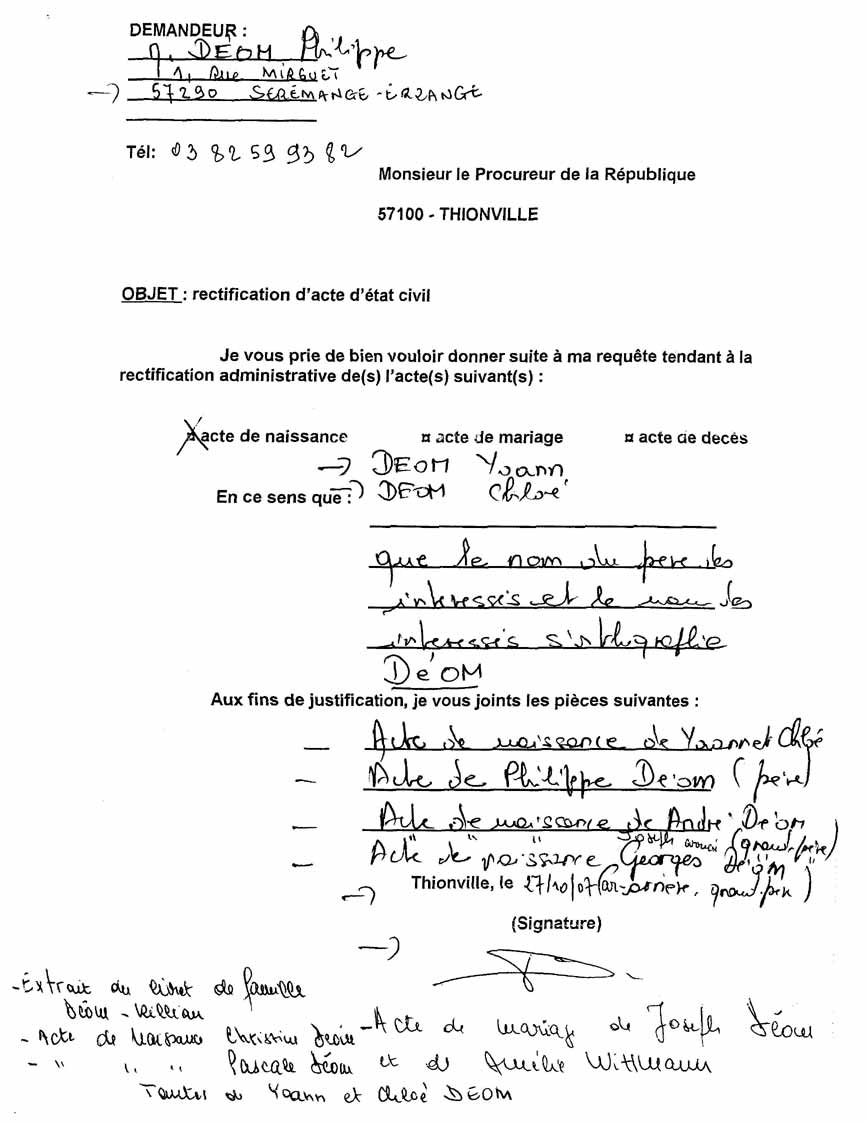 DEMANDEUR :
M. DÉOM Philippe
1, Rue MIRGUET
→ 57290 SERÉMANGE-ERZANGE
Tél: 03 82 59 93 82
Monsieur le Procureur de la République
57100 - THIONVILLE
OBJET : rectification d'acte d'état civil
Je vous prie de bien vouloir donner suite à ma requête tendant à la
rectification administrative de(s) l'acte(s) suivant(s) :
¤ acte de naissance ¤ acte de mariage ¤ acte de decés
→ DEOM Yoann
En ce sens que : → DEOM Chloé
que le nom du pere des
interessés et le nom des
interessés s'
DéOM
Aux fins de justification, je vous joints les pièces suivantes :
— Acte de naissance de Yoann et Chloé
— Acte de Philippe Déom (père)
— Acte de naissance de André Déom
Joseph (grand-père)
— Acte de naissance Georges Déom
→ Thionville, le 27/10/07 (arrière, grand père)
(Signature)
→
- Extrait du livret de famille
Déom - Killian
- Acte de Naissance Christine Déom - Acte de mariage de Joseph Déom
- " " " Pascale Déom et de Amélie Wittmann
Tantes de Yoann et Chloé DÉOM